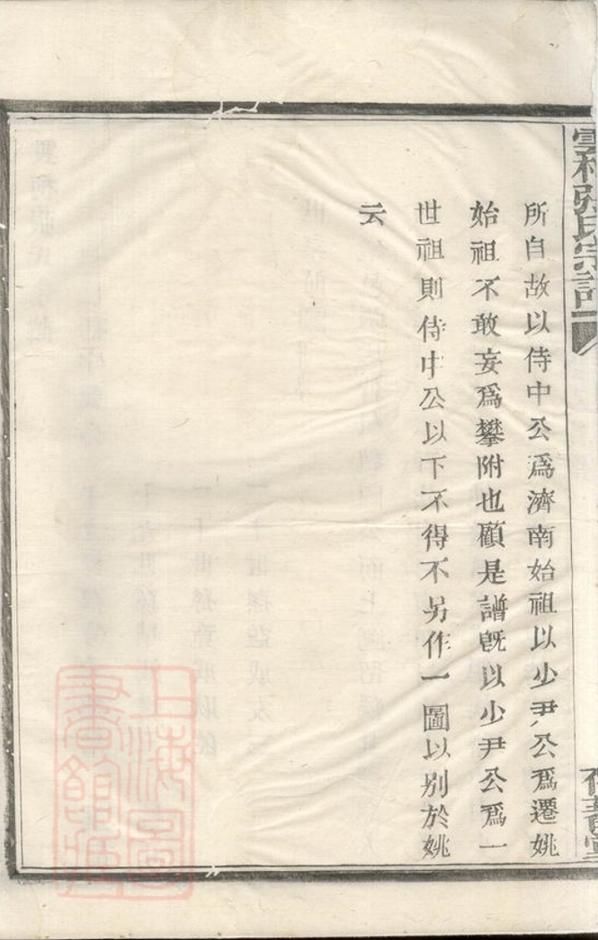 所自故以侍中公爲濟南始祖以少尹公爲遷姚
始祖不敢妄爲攀附也顧是譜旣以少尹公爲一
世祖則侍中公以下不得不另作一圖以別於姚
云
上海圖
書館藏